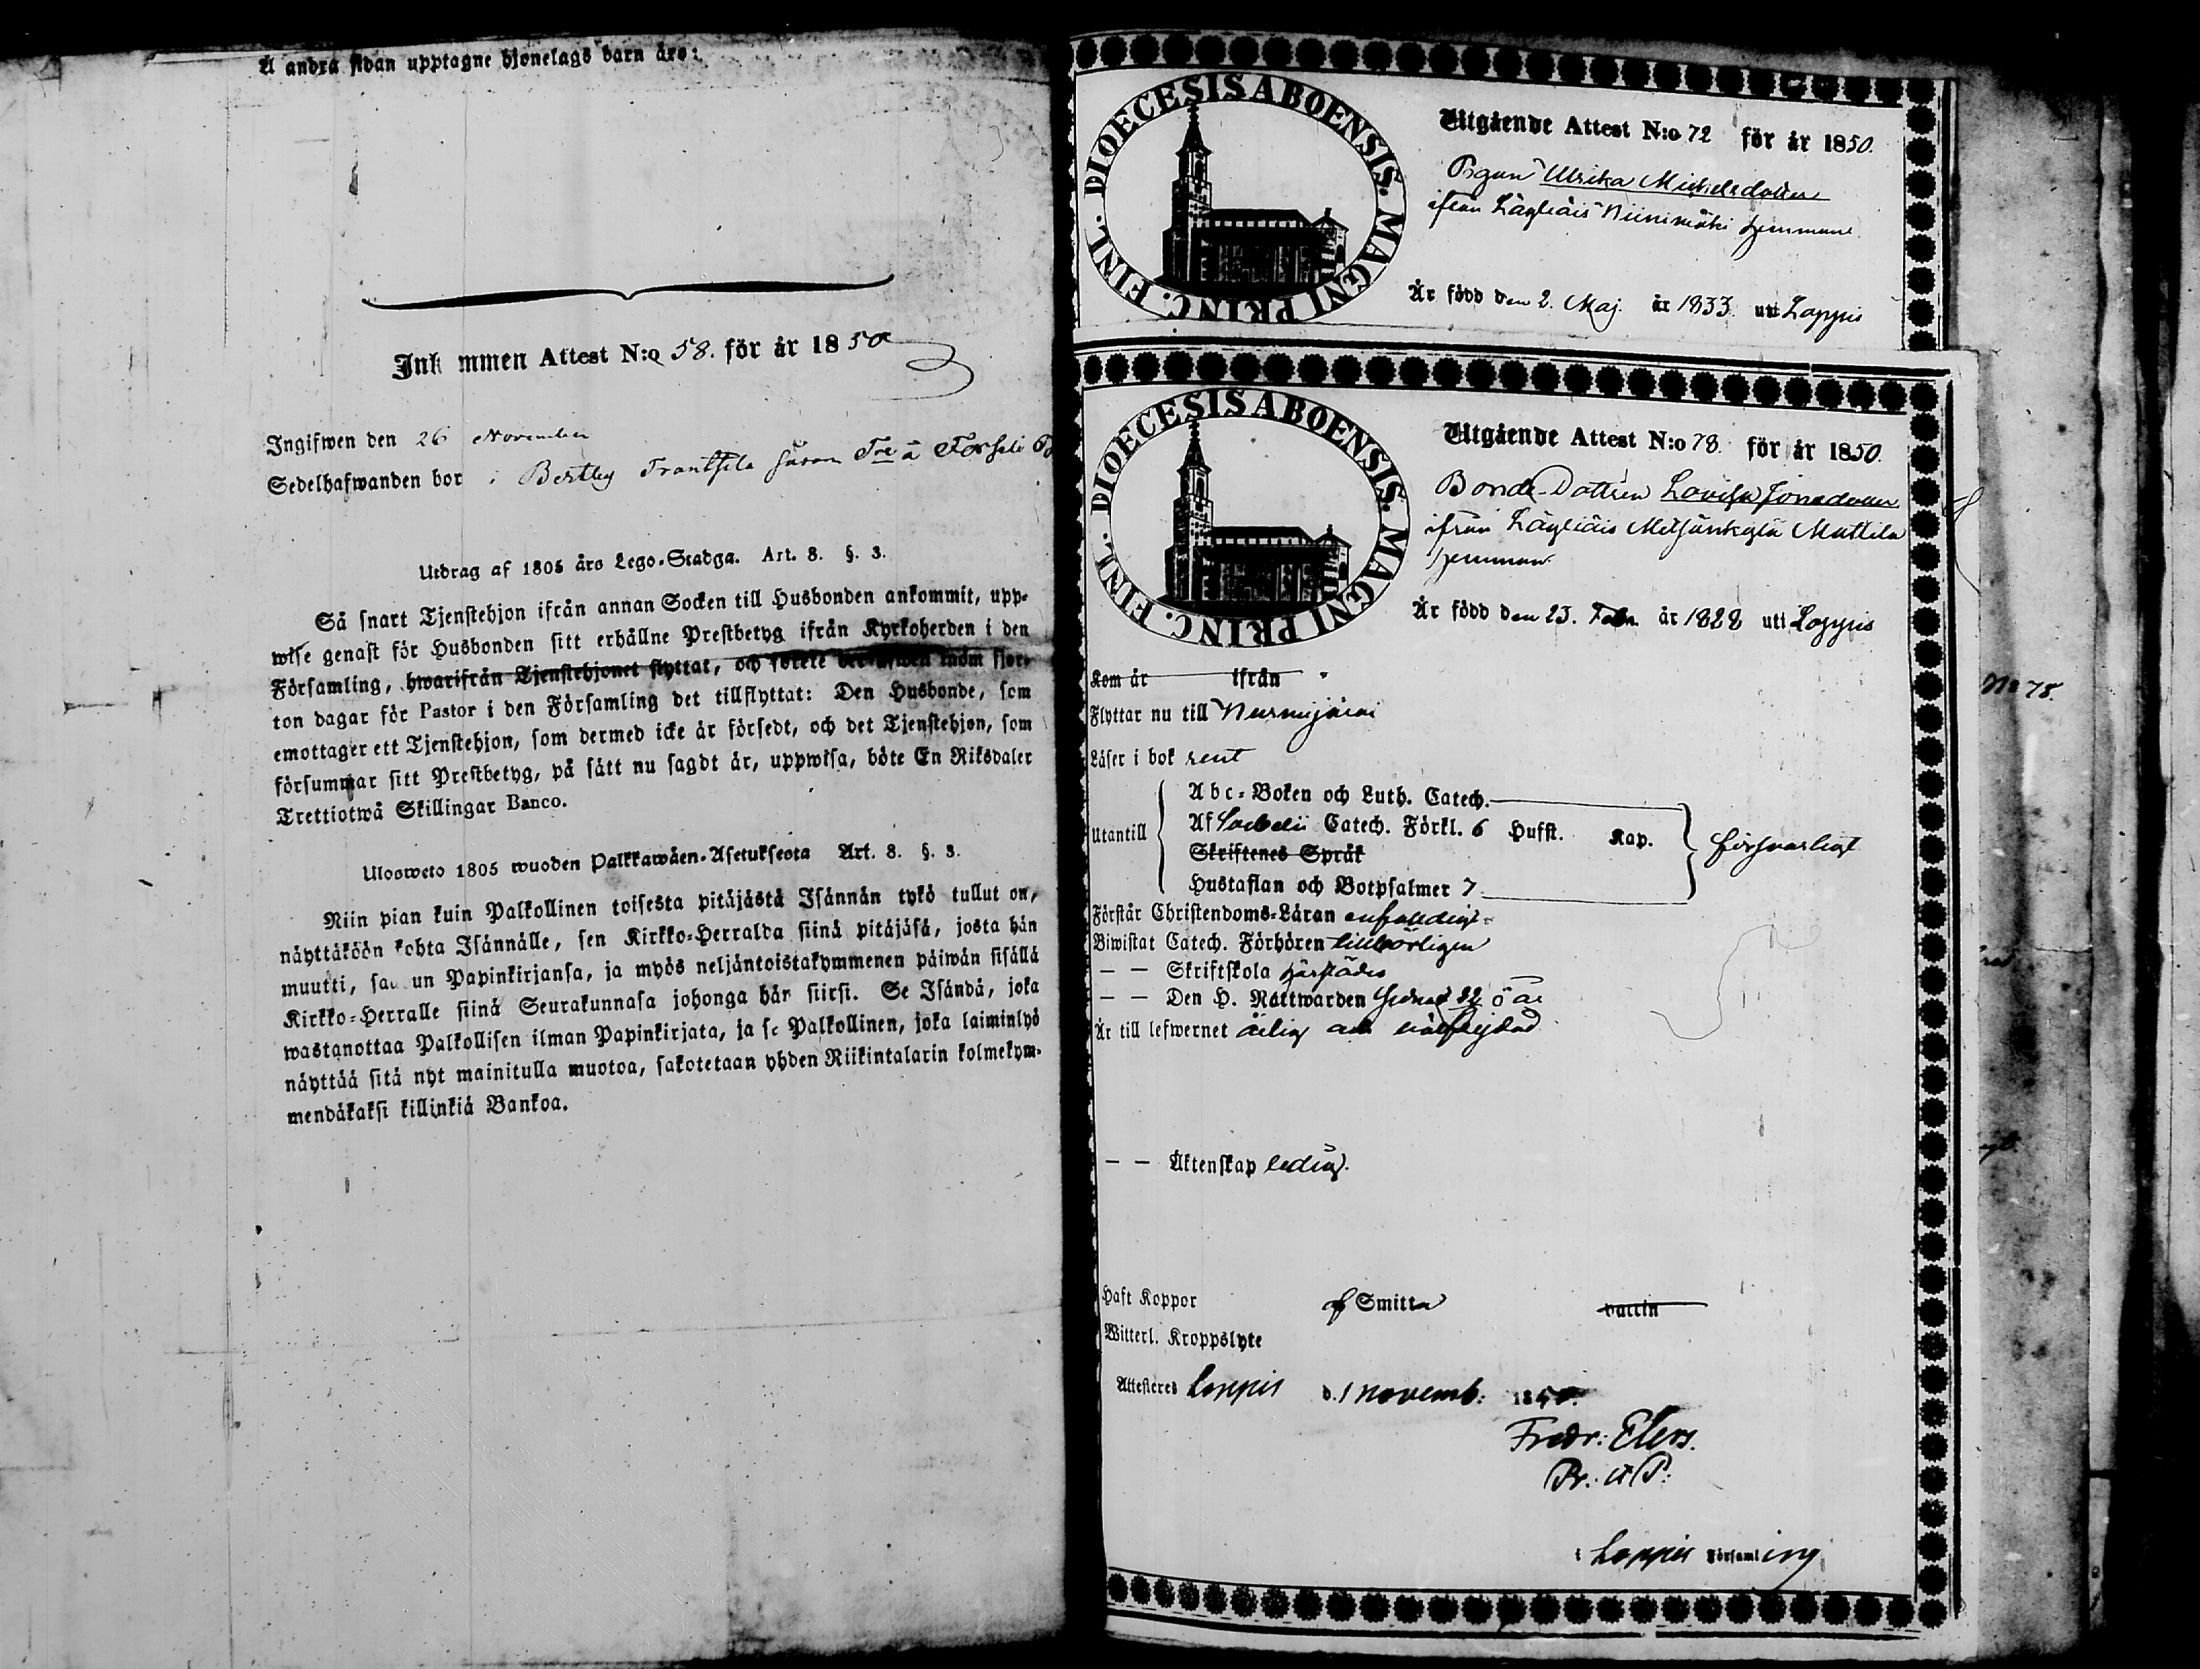 A andra sidan upptagne hjonelags barn äro:
Ink mmen Attest N:o 58. för år 1850
Ingifwen den 26 November
Sedelhafwanden bor i Bertby Frantsila
Utdrag af 1805 års Lego-Stadga. Art. 8. §. 3.
Så snart Tjenstehjon ifrån annan Socken till Husbonden ankommit, upp-
wise genast för Husbonden sitt erhållne Prestbetyg ifrån Kyrkoherden i den
Församling, hwarifrån Tjenstehjonet flyttat, och förete det inom fjor-
ton dagar för Pastor i den Församling det tillflyttat: Den Husbonde, som
emottager ett Tjenstehjon, som dermed icke är försedt, och det Tjenstehjon, som
försummar sitt Prestbetyg, på sätt nu sagdt är, uppwisa, böte En Riksdaler
Trettiotwå Skillingar Banco.
Ulosweto 1805 wuoden Palkkawäen-Asetuksesta Art. 8. §. 3.
Niin pian kuin Palkollinen toisesta pitäjästä Isännän tykö tullut on,
näyttäköön kohta Isännälle, sen Kirkko-Herralda siinä pitäjäsä, josta hän
muutti, sa un Papinkirjansa, ja myös neljäntoistakymmenen päiwän sisällä
Kirkko-Herralle siinä Seurakunnasa johonga hän siirsi. Se Isändä, joka
wastanottaa Palkollisen ilman Papinkirjata, ja se Palkollinen, joka laiminlyö
näyttää sitä nyt mainitulla muotoa, sakotetaan yhden Riikintalarin kolmekym-
mendäkaksi killinkiä Bankoa.
DIOECESIS ABOENSIS. MAGNI PRINC. FINL.
Utgående Attest N:o 72 för år 1850.
Pigan Ulrika Michelsdotter
ifrån Läyliäis Niinimäki hemman
Är född den 2. Maj. år 1833 uti Loppis
DIOECESIS ABOENSIS. MAGNI PRINC. FINL.
Utgående Attest N:o 78. för år 1850.
Bonde-Dottren Lovisa Jonasdotter
ifrån Läyliäis Metsänkylä Mattila
hemman
Är född den 23. Febr. år 1828 uti Loppis
Kom år ifrån
Flyttar nu till Nurmijärvi
Läser i bok rent
Utantill
Abc-Boken och Luth. Catech.
Af Catech. Förkl. 6 Hufst. Kap.
Skriftenes Språk
Hustaflan och Botpsalmer 7
försvarligt
Förstår Christendoms-Läran enfaldigt
Biwistat Catech. Förhören tillbörligen
— — Skriftskola härstädes
— — Den H. Nattwarden
Är till lefwernet ärlig och välfrejdad
— — Äktenskap ledig.
Haft Koppor af Smitta vaccin
Witterl. Kroppslyte
Attesteres Loppis d. 1 novemb: 1850.
Fredr: Elers.
Pr: o P:
i Loppis Församling
No 78.